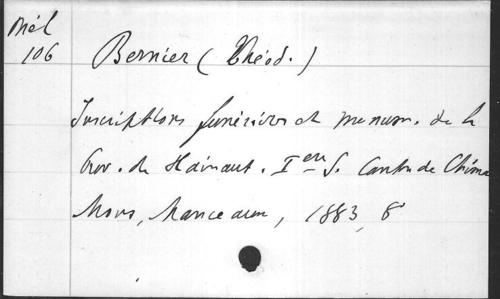 Mél
106
Bernier (Théod.)
Inscriptions funéraires et monum. de la
Prov. de Hainaut. Iere S. Canton de Chima
Mons, Manceaux, 1883, 8°